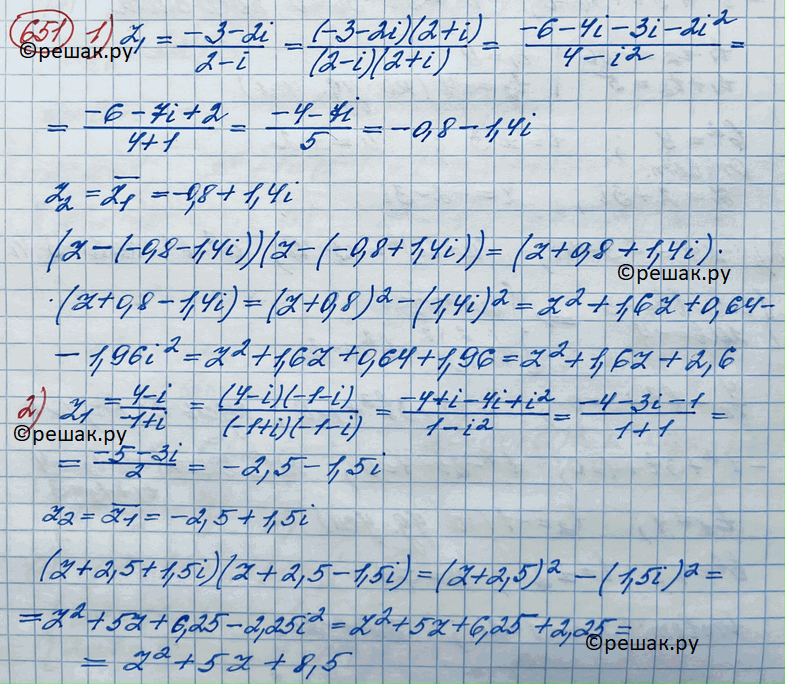 651 1) z₁ = (-3-2i)/(2-i) = ((-3-2i)(2+i))/((2-i)(2+i)) = (-6-4i-3i-2i²)/(4-i²) =
©решак.ру
= (-6-7i+2)/(4+1) = (-4-7i)/5 = -0,8-1,4i
z₂ = z̅₁ = -0,8+1,4i
(z-(-0,8-1,4i))(z-(-0,8+1,4i)) = (z+0,8+1,4i)·
©решак.ру
·(z+0,8-1,4i) = (z+0,8)² - (1,4i)² = z²+1,6z+0,64-
-1,96i² = z²+1,6z+0,64+1,96 = z²+1,6z+2,6
2) z₁ = (4-i)/(-1+i) = ((4-i)(-1-i))/((-1+i)(-1-i)) = (-4+i-4i+i²)/(1-i²) = (-4-3i-1)/(1+1) =
©решак.ру
= (-5-3i)/2 = -2,5-1,5i
z₂ = z̅₁ = -2,5+1,5i
(z+2,5+1,5i)(z+2,5-1,5i) = (z+2,5)² - (1,5i)² =
= z²+5z+6,25-2,25i² = z²+5z+6,25+2,25 =
©решак.ру
= z²+5z+8,5